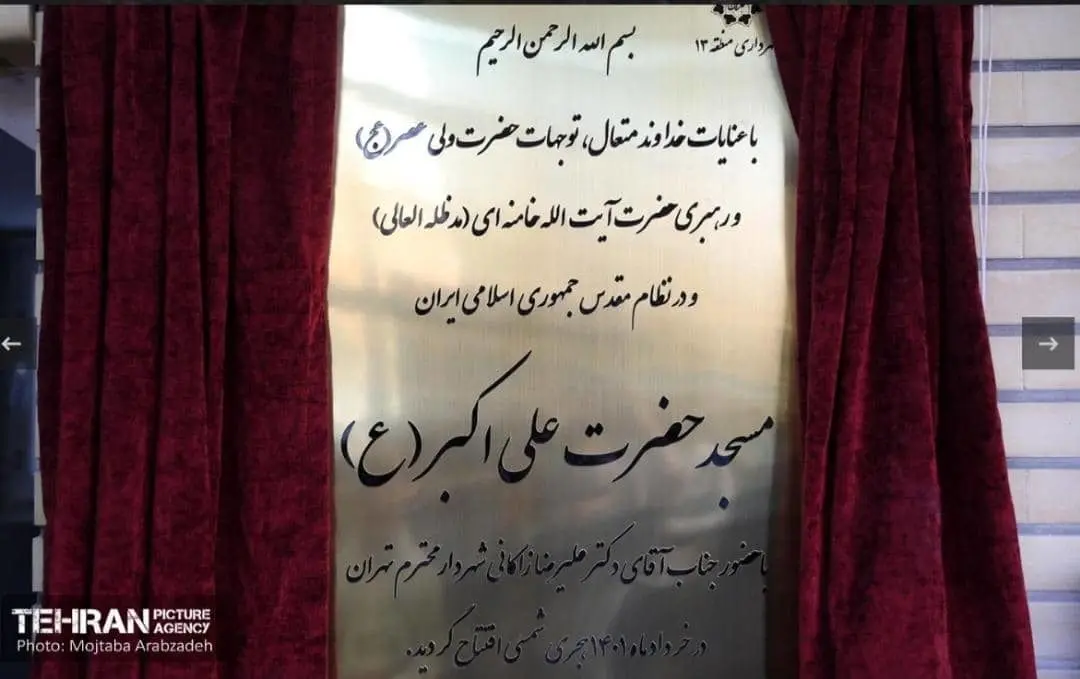 شهرداری منطقه ۱۳
بسم الله الرحمن الرحیم
با عنایات خداوند متعال، توجهات حضرت ولی عصر(عج)
و رهبری حضرت آیت الله خامنه ای (مدظله العالی)
و در نظام مقدس جمهوری اسلامی ایران
مسجد حضرت علی اکبر (ع)
با حضور جناب آقای دکتر علیرضا زاکانی شهردار محترم تهران
در خرداد ماه ۱۴۰۱ هجری شمسی افتتاح گردید.
TEHRAN PICTURE AGENCY
Photo: Mojtaba Arabzadeh